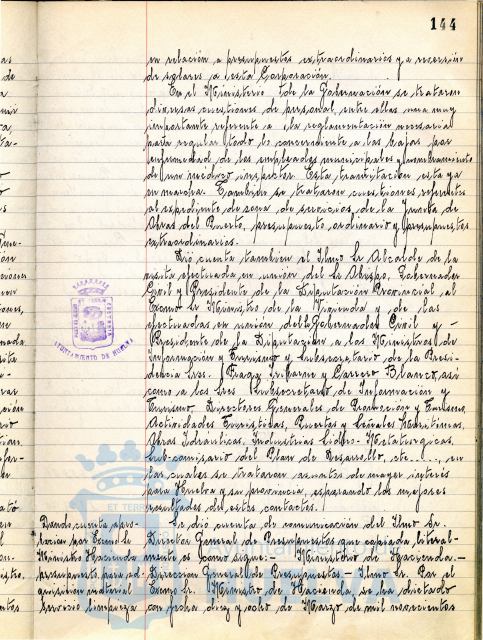 144
en relación a presupuestos extraordinarios y a recesión
de solares a esta Corporación.
En el Ministerio de la Gobernación se trataron
diversas cuestiones de personal, entre ellas una muy
importante referente a la reglamentación necesaria
para regular todo lo concerniente a las bajas por
enfermedad de los empleados municipales y nombramiento
de un medico inspector. Esta tramitacion esta ya
en marcha. Tambien se trataron cuestiones referentes
al expediente de zona de servicios de la Junta de
Obras del Puerto, presupuesto ordinario y presupuestos
extraordinarios.
Dió cuenta tambien el Ilmo Sr Alcalde de la
visita efectuada en union del Sr Obispo, Gobernador
Civil y Presidente de la Diputación Provincial al
Excmo Sr Ministro de la Vivienda y de las
efectuadas en unión del Gobernador Civil y -
Presidente de la Diputacion a los Ministros de
Información y Turismo y Subsecretario de la Presi-
dencia Sres. Fraga Iribarne y Carrero Blanco, asi
como a los Sres Subsecretario de Información y
Turismo, Directores Generales de Promoción y Turismo,
Actividades Turisticas, Puertos y Señales Maritimas,
Obras Idraulicas, Industrias Sidero-Metalurgicas,
Sub-comisario del Plan de Desarrollo, etc ...., en
las cuales se trataron asuntos de mayor interés
para Huelva y su provincia, esperando los mejores
resultados de estos contactos.
Se dió cuenta de comunicacion del Ilmo Sr.
Director General de Presupuestos que copiada literal-
mente es como sigue: - Ministerio de Hacienda. -
Direccion General de Presupuestos. - Ilmo Sr. Por el
Excmo Sr. Ministro de Hacienda, se ha dictado
con fecha diez y ocho de Marzo de mil novecientos
Dando cuenta apro-
bacion por Excmo Sr
Ministro Hacienda
presupuesto para ad-
quisición material
servicio limpieza
AYUNTAMIENTO DE HUELVA